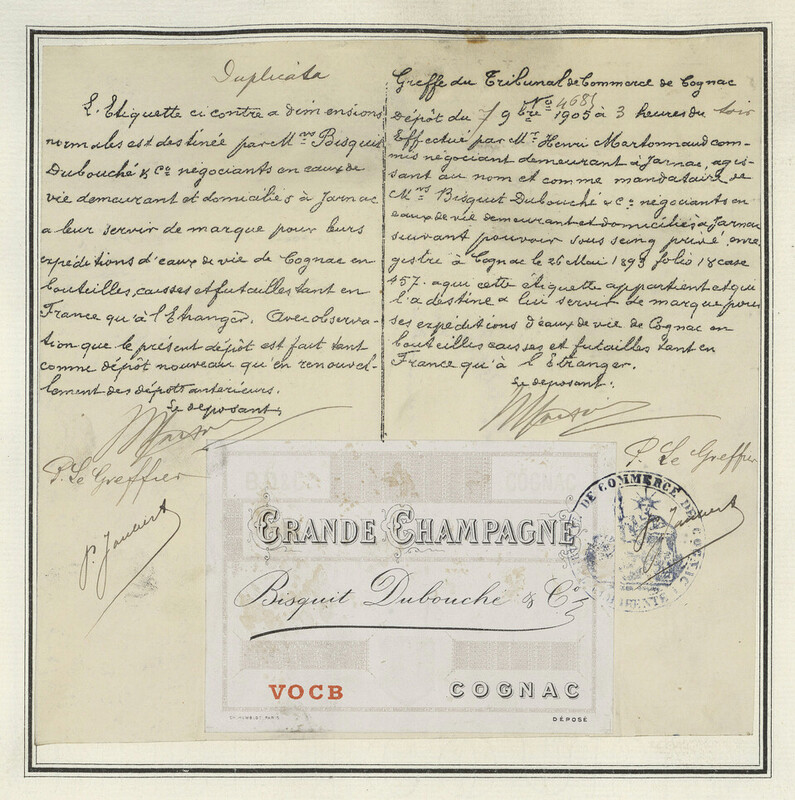 Duplicata
L'Etiquette ci contre a dimensions
normales est destinée par Mrs Bisquit
Dubouché & Co négociants en eaux de
vie demeurant et domiciliés à Jarnac
a leur servir de marque pour leurs
expéditions d'eaux de vie de Cognac en
bouteilles, caisses et futailles tant en
France qu'à l'Etranger. Avec observa-
tion que le présent dépôt est fait tant
comme dépôt nouveau qu'en renouvel-
lement des dépôts antérieurs.
Le deposant,
P. Le Greffier
Greffe du Tribunal de Commerce de Cognac
No 4685
Dépôt du 7 9bre 1905 à 3 heures du soir
Effectué par Mr Henri Martonnaud com-
mis négociant demeurant à Jarnac, agis-
sant au nom et comme mandataire de
Mrs Bisquit Dubouché & Co négociants en
eaux de vie demeurant et domiciliés à Jarnac
suivant pouvoir sous seing privé, enre
gistré à Cognac le 26 Mai 1893 folio 18 case
457. a qui cette étiquette appartient et qui
l'a destiné a lui servir de marque pour
ses expéditions d'eaux de vie de Cognac en
bouteilles caisses et futailles tant en
France qu'à l'Etranger.
Le deposant:
P. Le Greffier
GRANDE CHAMPAGNE
Bisquit Dubouché & Co
VOCB COGNAC
DÉPOSÉ
DE COMMERCE DE COGNAC